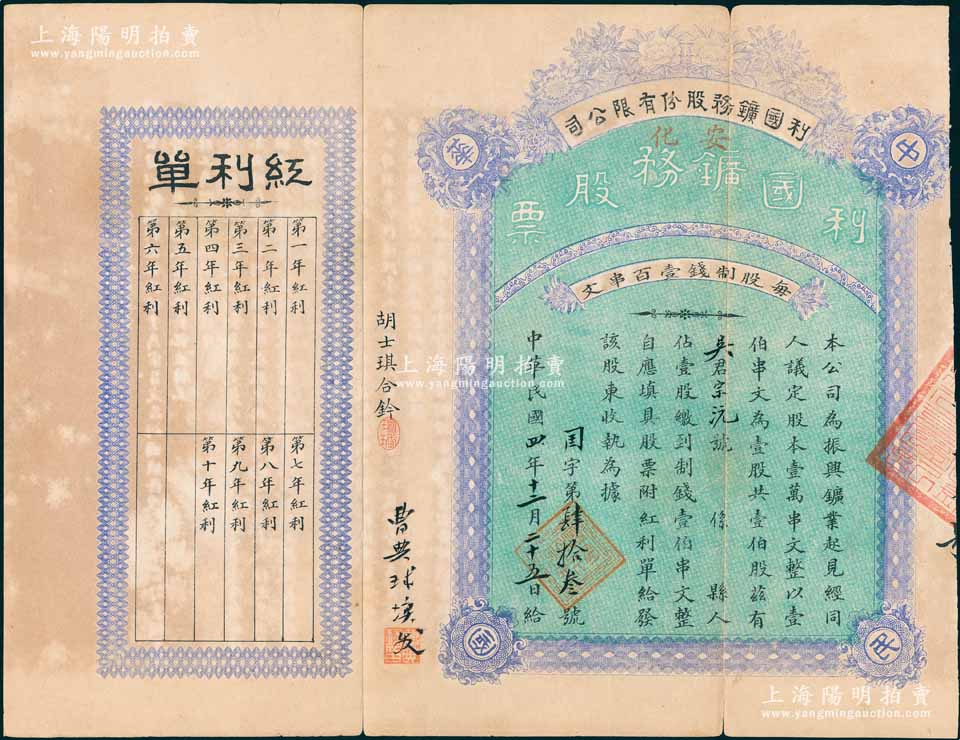 上海陽明拍賣
www.yangmingauction.com
利國鑛務股份有限公司
安化
利國鑛務股票
每股制錢壹百串文
中華民國
本公司為振興鑛業起見經同
人議定股本壹萬串文整以壹
伯串文為壹股共壹伯股茲有
吳君宗沅號 係 縣人
佔壹股繳到制錢壹伯串文整
自應填具股票附紅利單給發
該股東收執為據
字第肆拾叁號
中華民國四年十二月二十五日給
胡士琪合鈐
曹典球填發
紅利單
第一年紅利
第二年紅利
第三年紅利
第四年紅利
第五年紅利
第六年紅利
第七年紅利
第八年紅利
第九年紅利
第十年紅利
上海陽明拍賣
www.yangmingauction.com
上海陽明拍賣
www.yangmingauction.com